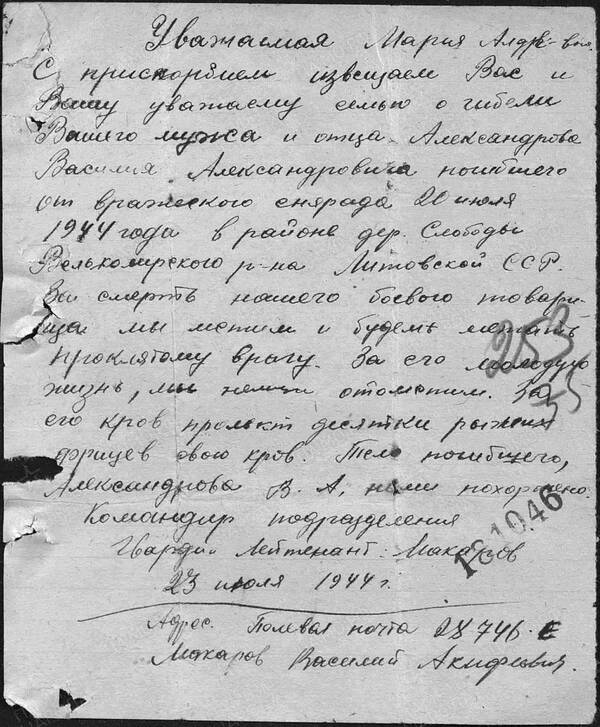 Уважаемая Мария
С прискорбием извещаем Вас и
Вашу уважаему семью о гибели
Вашего мужа и отца Александрова
Василия Александровича погибшего
от вражеского снаряда 20 июля
1944 года в районе дер. Слободы
Велькомирского р-на Литовской ССР.
За смерть нашего боевого товари-
ща мы мстим и будем мстить
проклятому врагу. За его молодую
жизнь, мы отомстим. За
его кров прольют десятки рыжих
фрицев свою кров. Тело погибшего,
Александрова В. А, нами похоронено.
Командир подразделения
Гвардии Лейтенант: Макаров
23 июля 1944 г.
Адрес. Полевая почта 28746-Е
Макаров Василий
253
35
181046